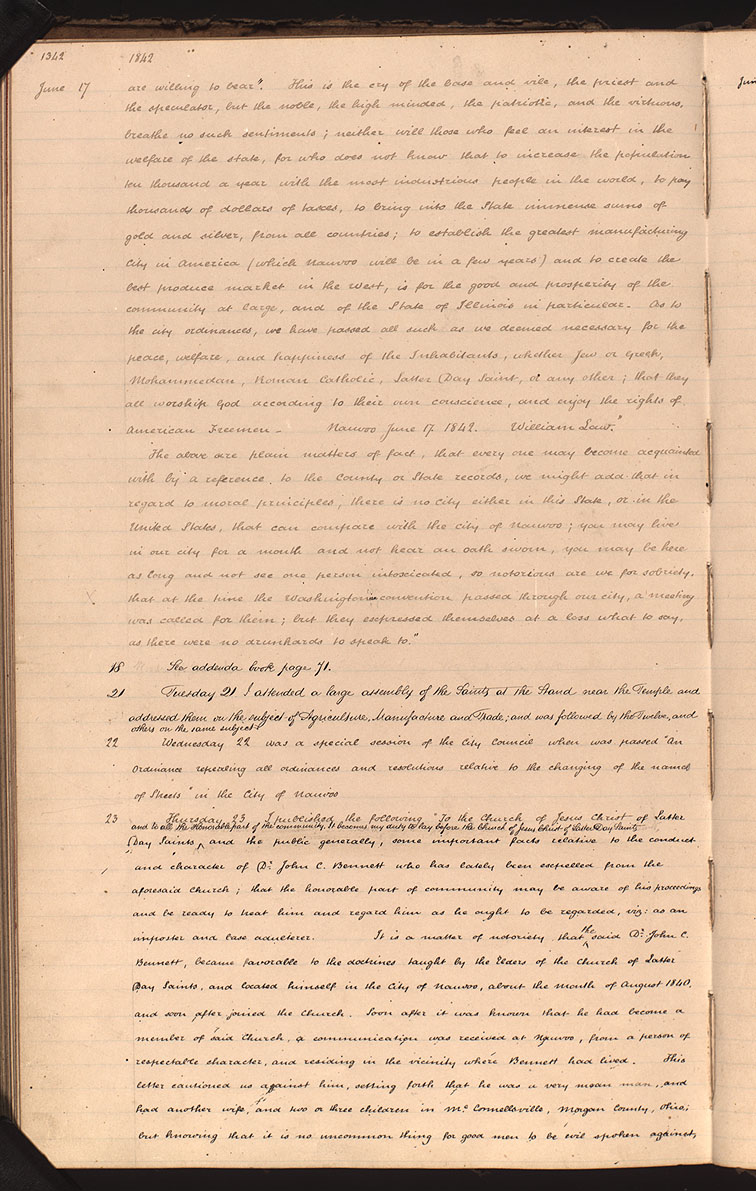 1342 1842
June 17 are willing to bear". This is the cry of the base and vile, the priest and
the speculator, but the noble, the high minded, the patriotic, and the virtuous,
breathe no such sentiments; neither will those who feel an interest in the
welfare of the state, for who does not know that to increase the population
ten thousand a year with the most industrious people in the world, to pay
thousands of dollars of taxes, to bring into the State immense sums of
gold and silver, from all countries; to establish the greatest manufacturing
City in America (which Nauvoo will be in a few years) and to create the
best produce market in the West, is for the good and prosperity of the
community at large, and of the State of Illinois in particular. As to
the city ordinances, we have passed all such as we deemed necessary for the
peace, welfare, and happiness of the Inhabitants, whether Jew or Greek,
Mohammedan, Roman Catholic, Latter Day Saint, or any other; that they
all worship God according to their own conscience, and enjoy the rights of
American Freemen — Nauvoo June 17. 1842. William Law."
The above are plain matters of fact, that every one may become acquainted
with by a reference to the County or State records, we might add that in
regard to moral principles, there is no city either in this State, or in the
United States, that can compare with the city of Nauvoo; you may live
in our city for a month and not hear an oath sworn, you may be here
as long and not see one person intoxicated, so notorious are we for sobriety,
that at the time the Washingtonian convention passed through our city, a meeting
was called for them; but they expressed themselves at a loss what to say,
as there were no drunkards to speak to."
18 See addenda book page 71.
21 Tuesday 21 I attended a large assembly of the Saints at the Stand near the Temple and
addressed them on the subject of Agriculture, Manufacture and Trade; and was followed by the Twelve, and
others on the same subject
22 Wednesday 22 was a special session of the City Council when was passed "An
Ordinance repealing all ordinances and resolutions relative to the changing of the names
of Streets" in the City of Nauvoo
23 Thursday 23 I published the following "To the Church of Jesus Christ of Latter
and to all the Honorable part of the community. It becomes my duty to lay before the Church of Jesus Christ of Latter Day Saints
Day Saints, and the public generally, some important facts relative to the conduct
and character of Dr. John C. Bennett who has lately been expelled from the
aforesaid church; that the honorable part of community may be aware of his proceedings
and be ready to treat him and regard him as he ought to be regarded, viz: as an
imposter and base adulterer. It is a matter of notoriety that the said Dr. John C.
Bennett, became favorable to the doctrines taught by the Elders of the Church of Latter
Day Saints, and located himself in the City of Nauvoo, about the month of August 1840,
and soon after joined the Church. Soon after it was known that he had become a
member of said Church, a communication was received at Nauvoo, from a person of
respectable character, and residing in the vicinity where Bennett had lived. This
letter cautioned us against him, setting forth that he was a very mean man, and
had another wife, and two or three children in Mc.Connellsville, Morgan County, Ohio;
but knowing that it is no uncommon thing for good men to be evil spoken against,